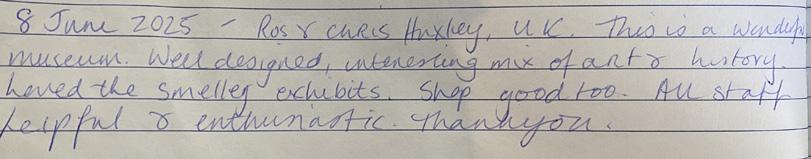 8 June 2025 - Ros & Chris Huxley, UK. This is a wonderful
museum. Well designed, interesting mix of art & history.
Loved the smelley exhibits. Shop good too. All staff
helpful & enthusiastic. Thankyou.